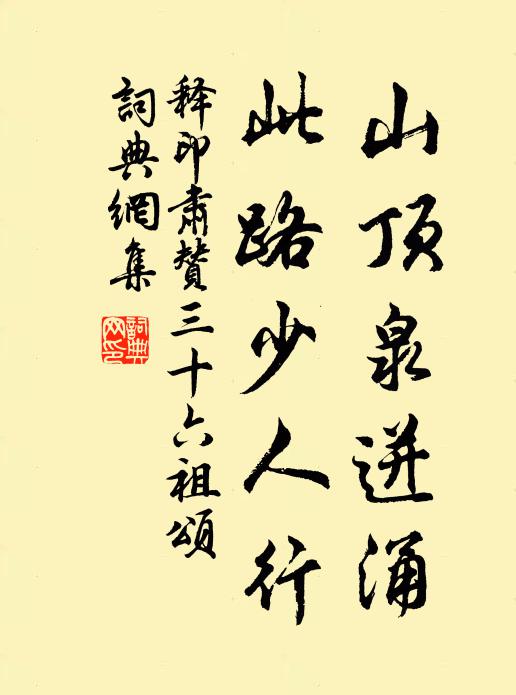 山顶泉迸涌
此路少人行
释印肃赞三十六祖颂
詞典網集
詞典網印